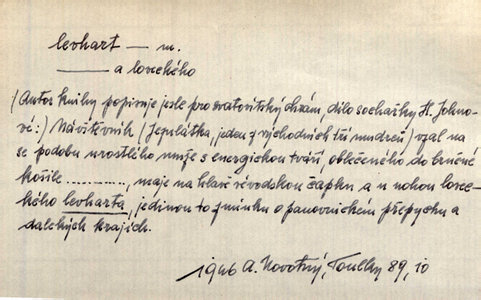 levhart — m.
——— a loveckého
/Autor knihy popisuje jesle pro svatovítský chrám, dílo sochařky H. Johno-
vé:/ Návštěvník / jeden z východních tří mudrců / vzal na
se podobu urostlého muže s energickou tváří, oblečeného do brněné
košile ............, maje na hlavě vévodskou čapku a u nohou lovec-
kého levharta, jedinou to zmínku o panovnickém přepychu a
dalekých krajích.
1946 A. Novotný, Toulky 89, 10